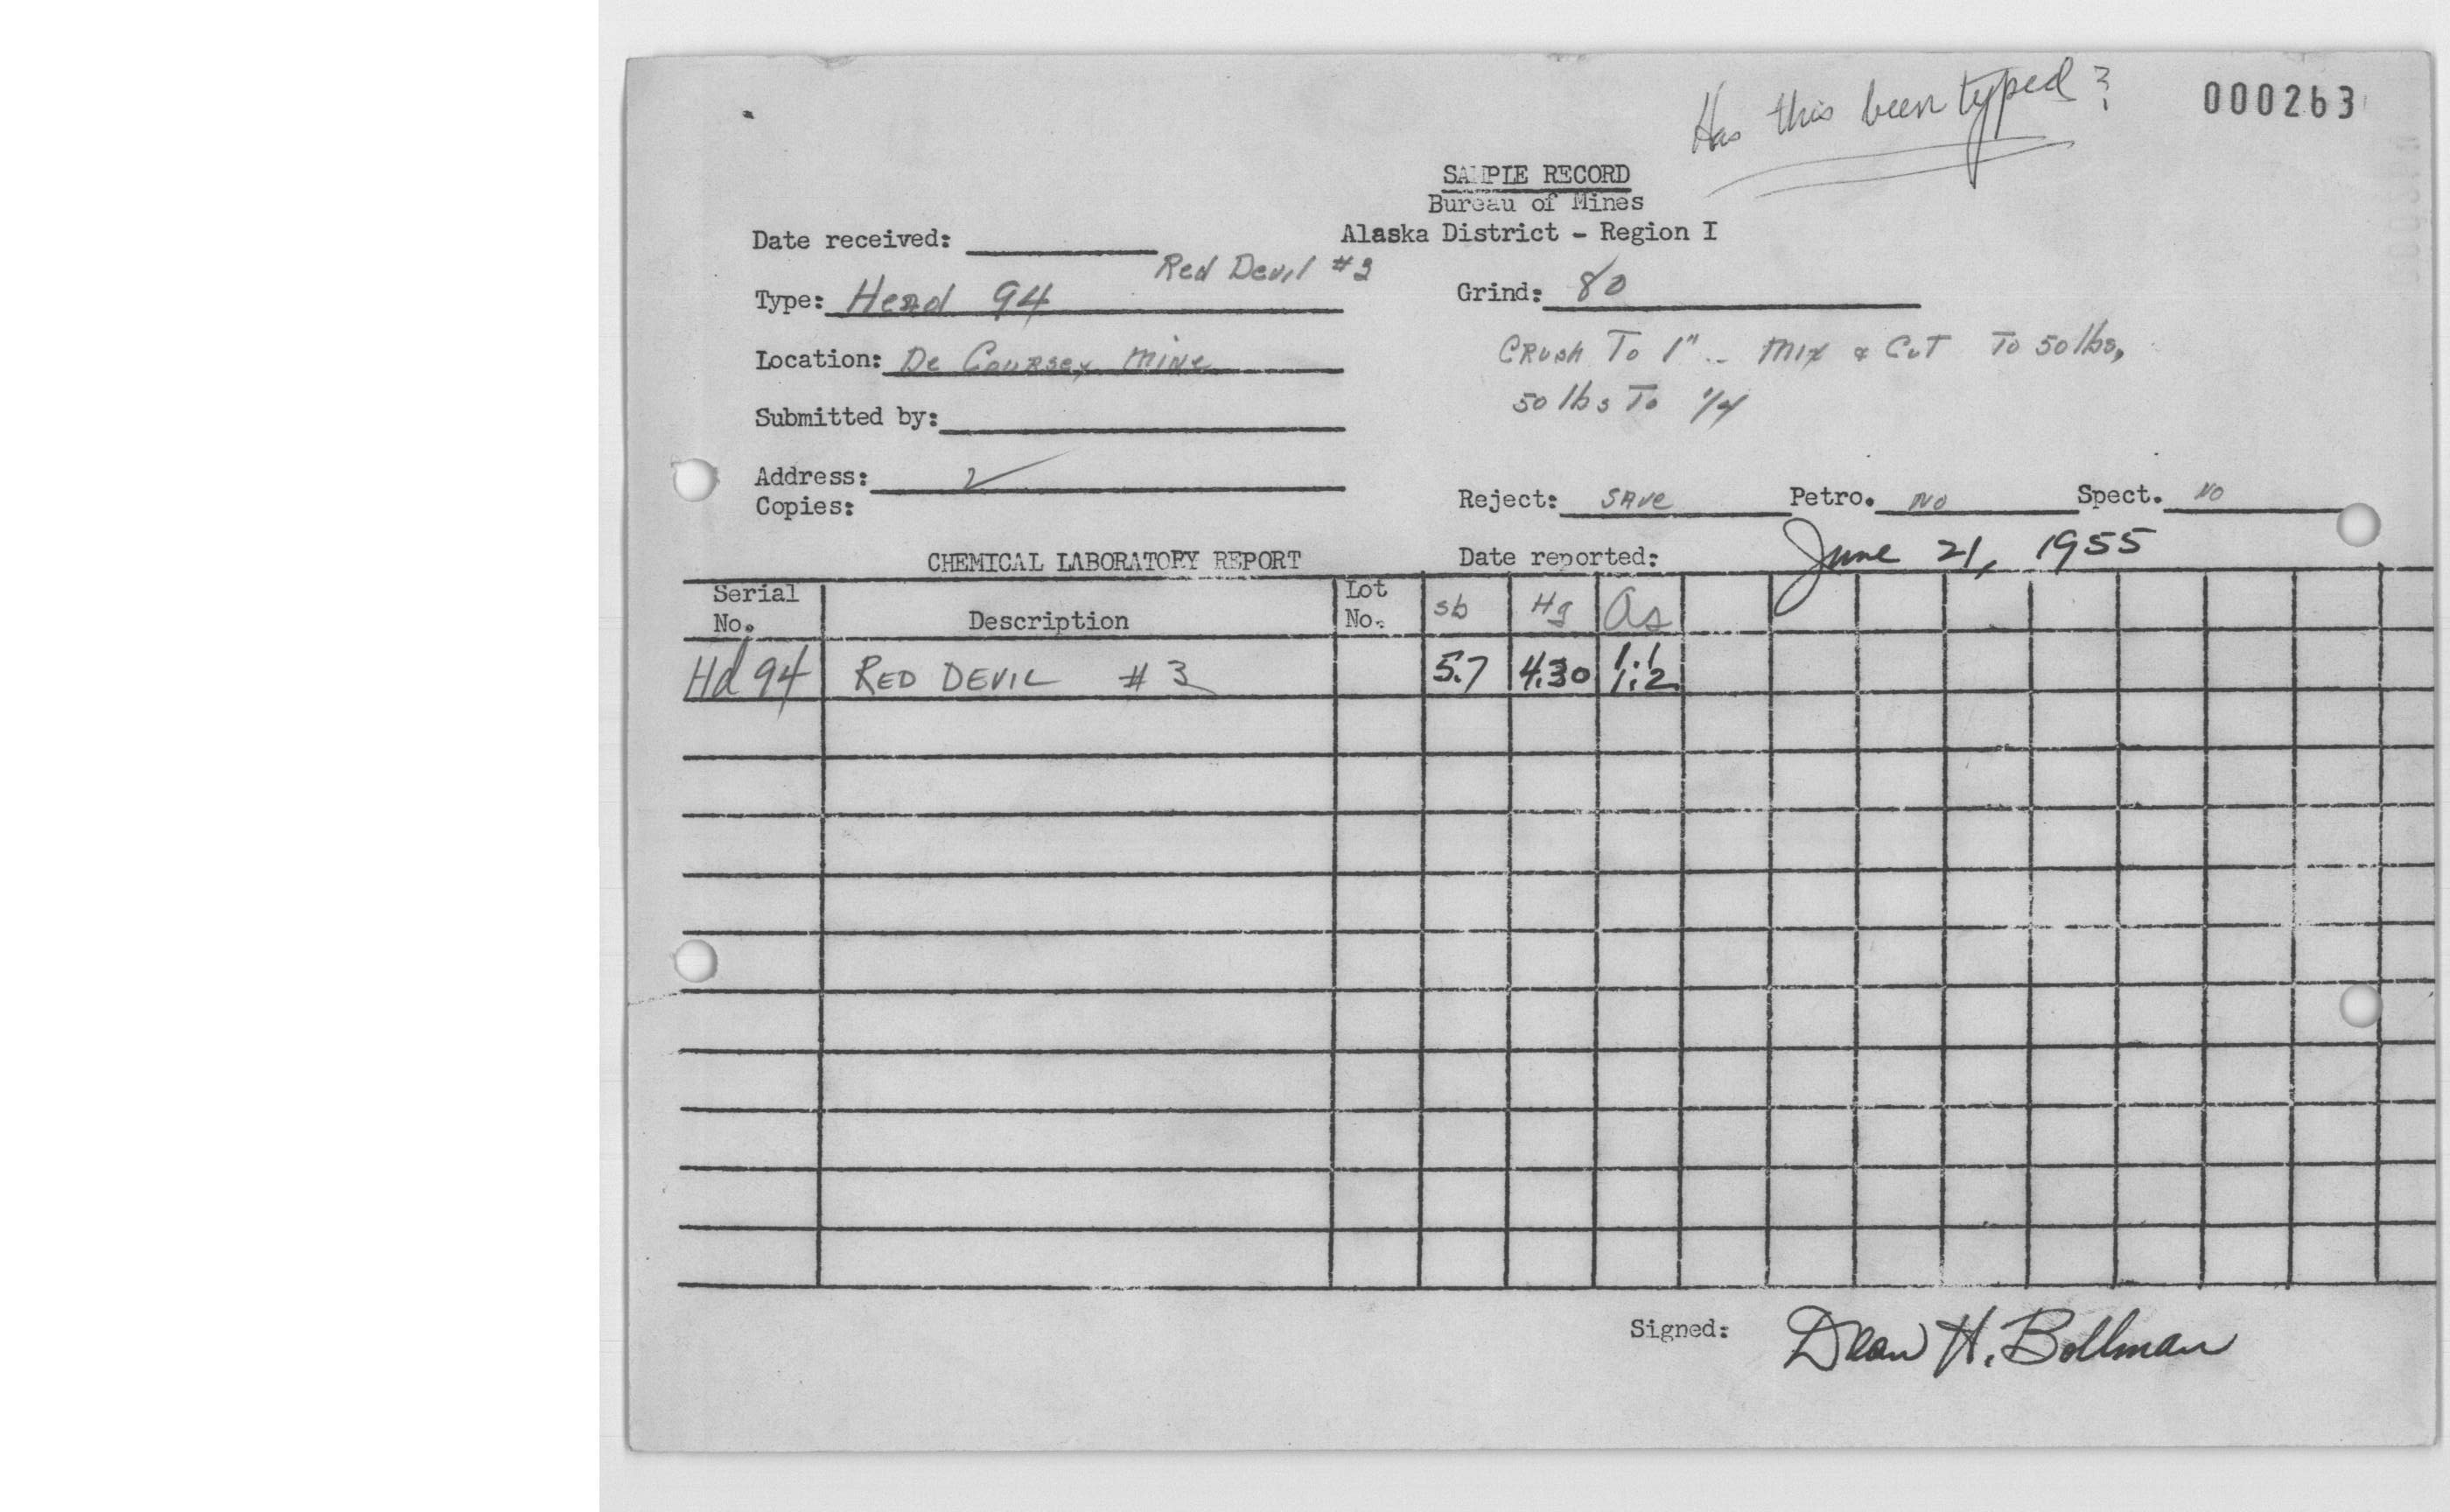 Has this been typed?
000263
SAMPLE RECORD
Bureau of Mines
Alaska District - Region I
Date received:
Red Devil #3
Type: Head 94
Grind: 80
Location: De Coursey Mine
CRUSH TO 1" - MIX & CUT TO 50 lbs,
50 lbs To 1/4
Submitted by:
Address:
Copies:
Reject: SAVE Petro. NO Spect. NO
CHEMICAL LABORATORY REPORT Date reported: June 21, 1955
Serial No. Description Lot No. Sb Hg As
Hd 94 RED DEVIL #3 5.7 4.30 1.1
1.2
Signed: Dean H. Bollman